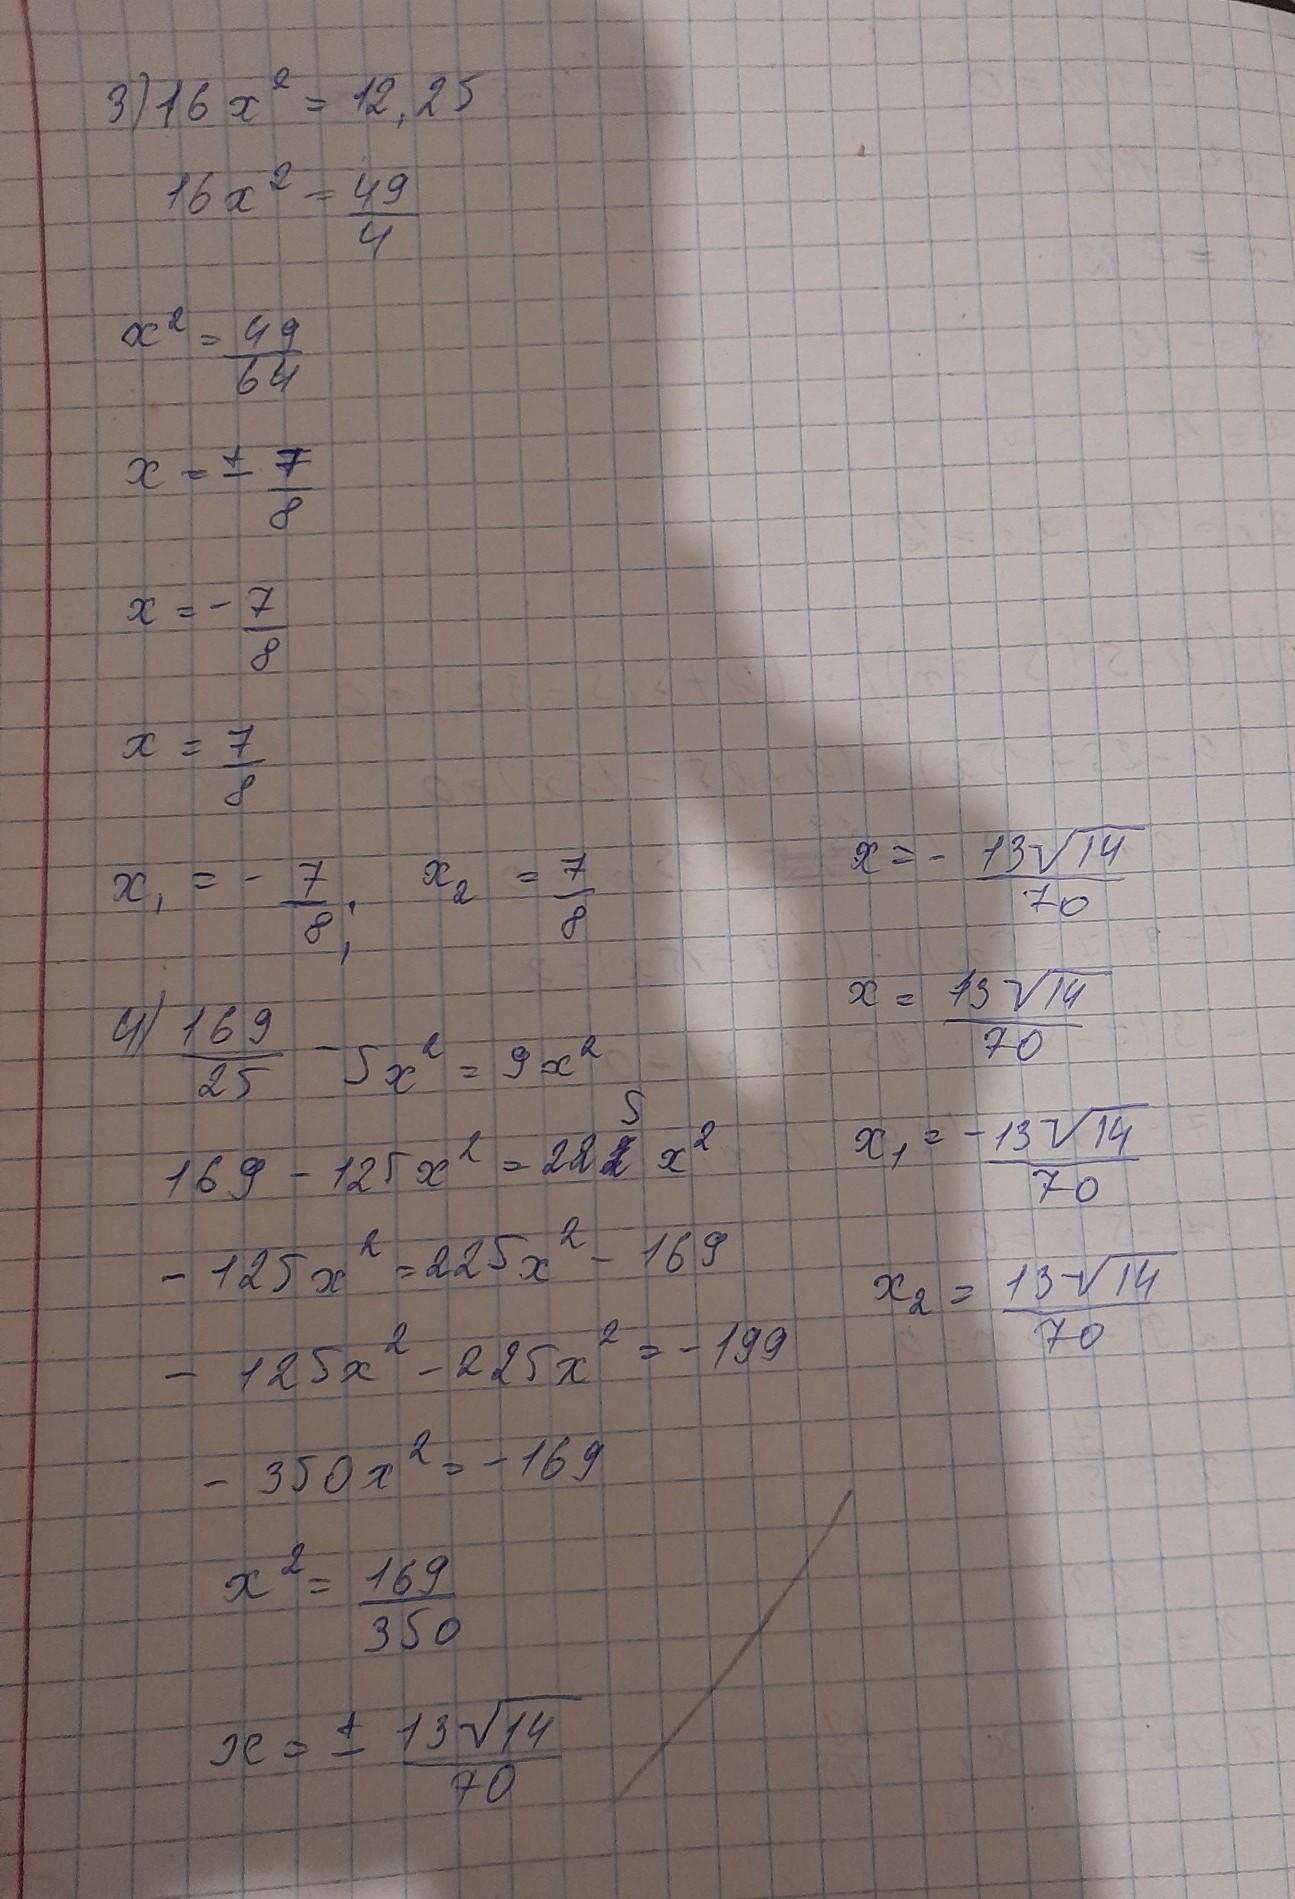 3) 16x² = 12,25
16x² = 49/4
x² = 49/64
x = ± 7/8
x = - 7/8
x = 7/8
x₁ = - 7/8; x₂ = 7/8
4) 169/25 - 5x² = 9x²
169 - 125x² = 225x²
- 125x² = 225x² - 169
- 125x² - 225x² = -199
- 350x² = -169
x² = 169/350
x = ± 13√14/70
x = - 13√14/70
x = 13√14/70
x₁ = - 13√14/70
x₂ = 13√14/70